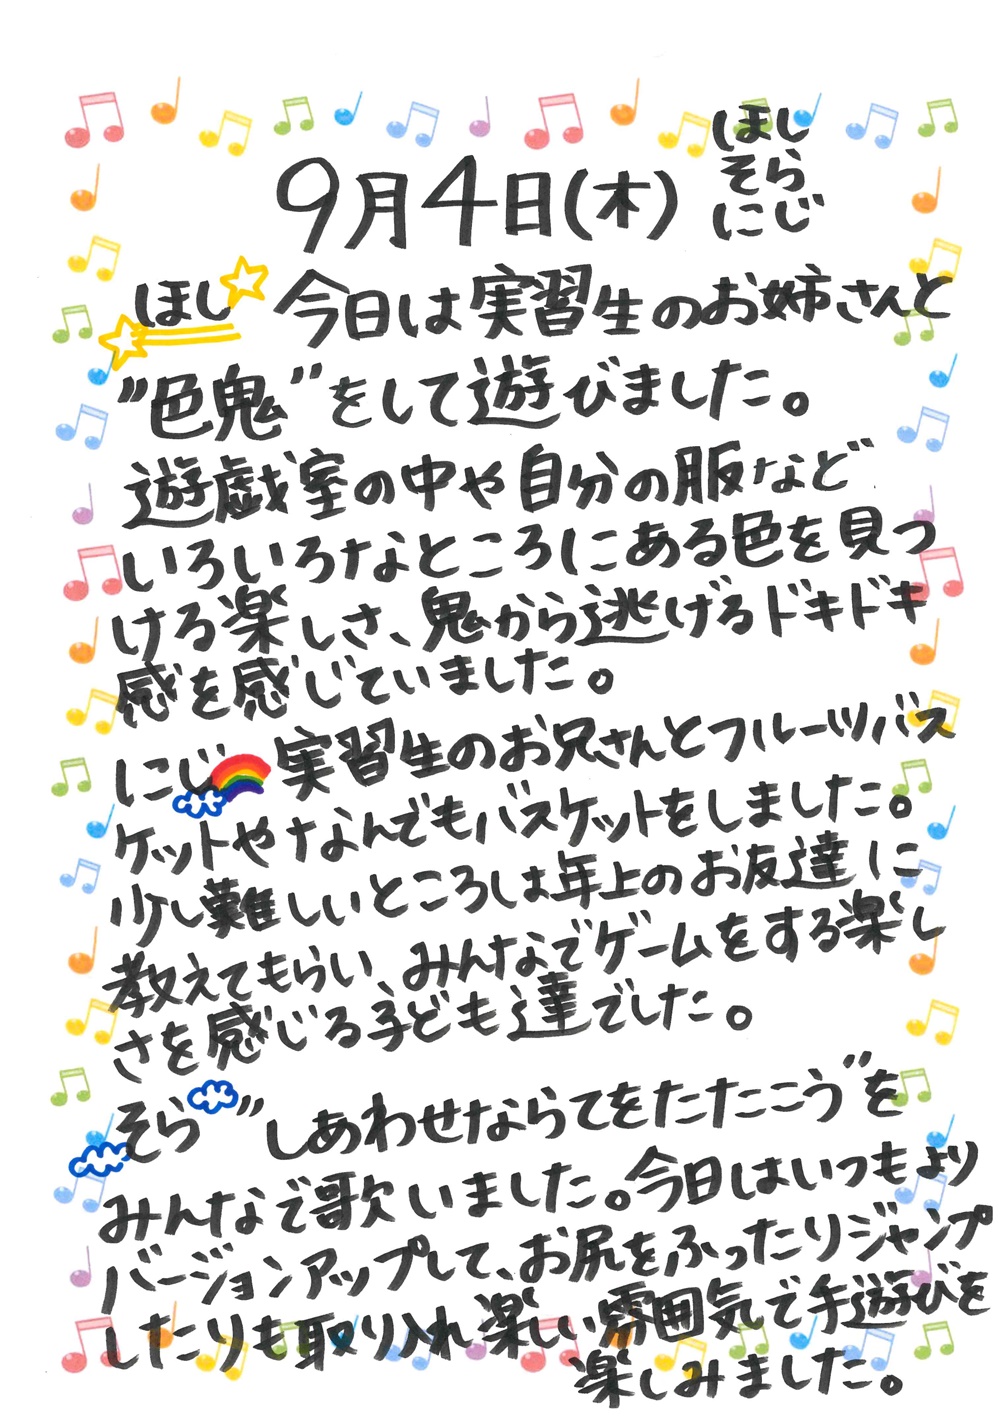 9月4日(木)
ほし
そら
にじ
ほし 今日は実習生のお姉さんと
"色鬼"をして遊びました。
遊戯室の中や自分の服など
いろいろなところにある色を見つ
ける楽しさ、鬼から逃げるドキドキ
感を感じていました。
にじ 実習生のお兄さんとフルーツバス
ケットやなんでもバスケットをしました。
少し難しいところは年上のお友達に
教えてもらい、みんなでゲームをする楽し
さを感じる子ども達でした。
そら "しあわせならてをたたこう"を
みんなで歌いました。今日はいつもより
バージョンアップして、お尻をふったりジャンプ
したりも取り入れ楽しい雰囲気で手遊びを
楽しみました。